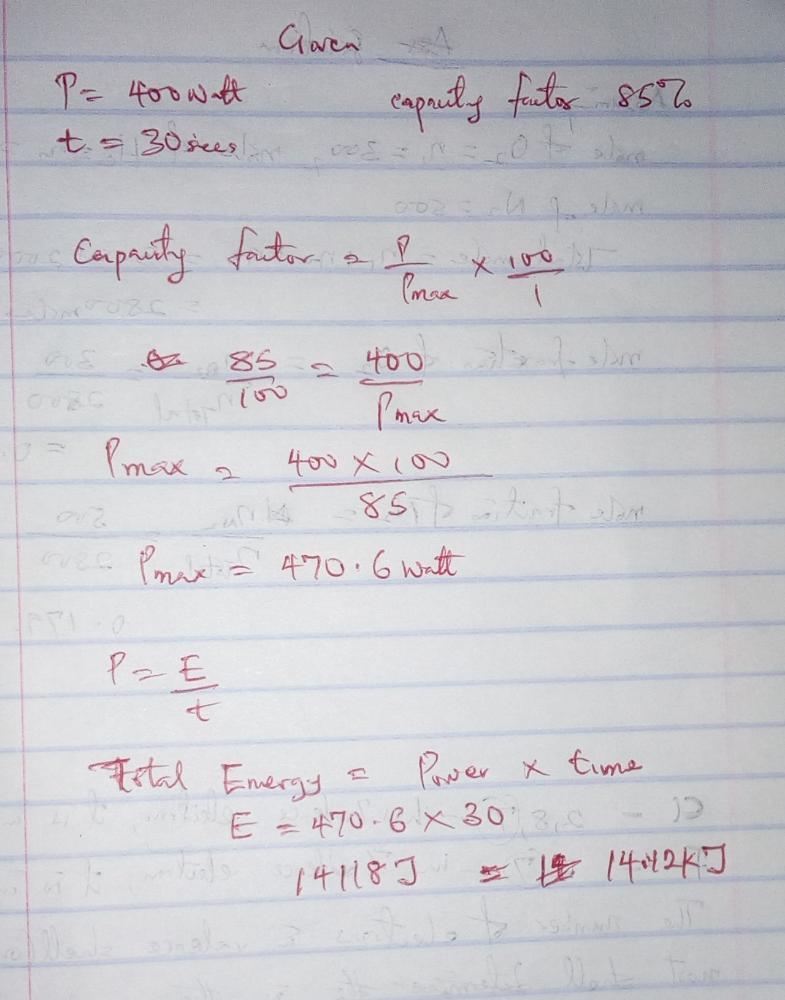 Given
P = 400 Watt capacity factor 85%
t = 30 secs
Capacity factor = P/Pmax × 100/1
85/100 = 400/Pmax
Pmax = 400 × 100/85
Pmax = 470.6 watt
P = E/t
Total Energy = Power × time
E = 470.6 × 30
14118 J = 14.12 KJ